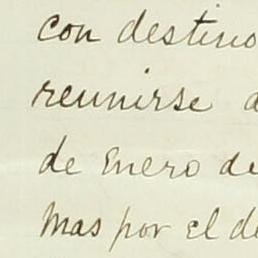 con destino
reunirse a
de Enero de
Mas por el de